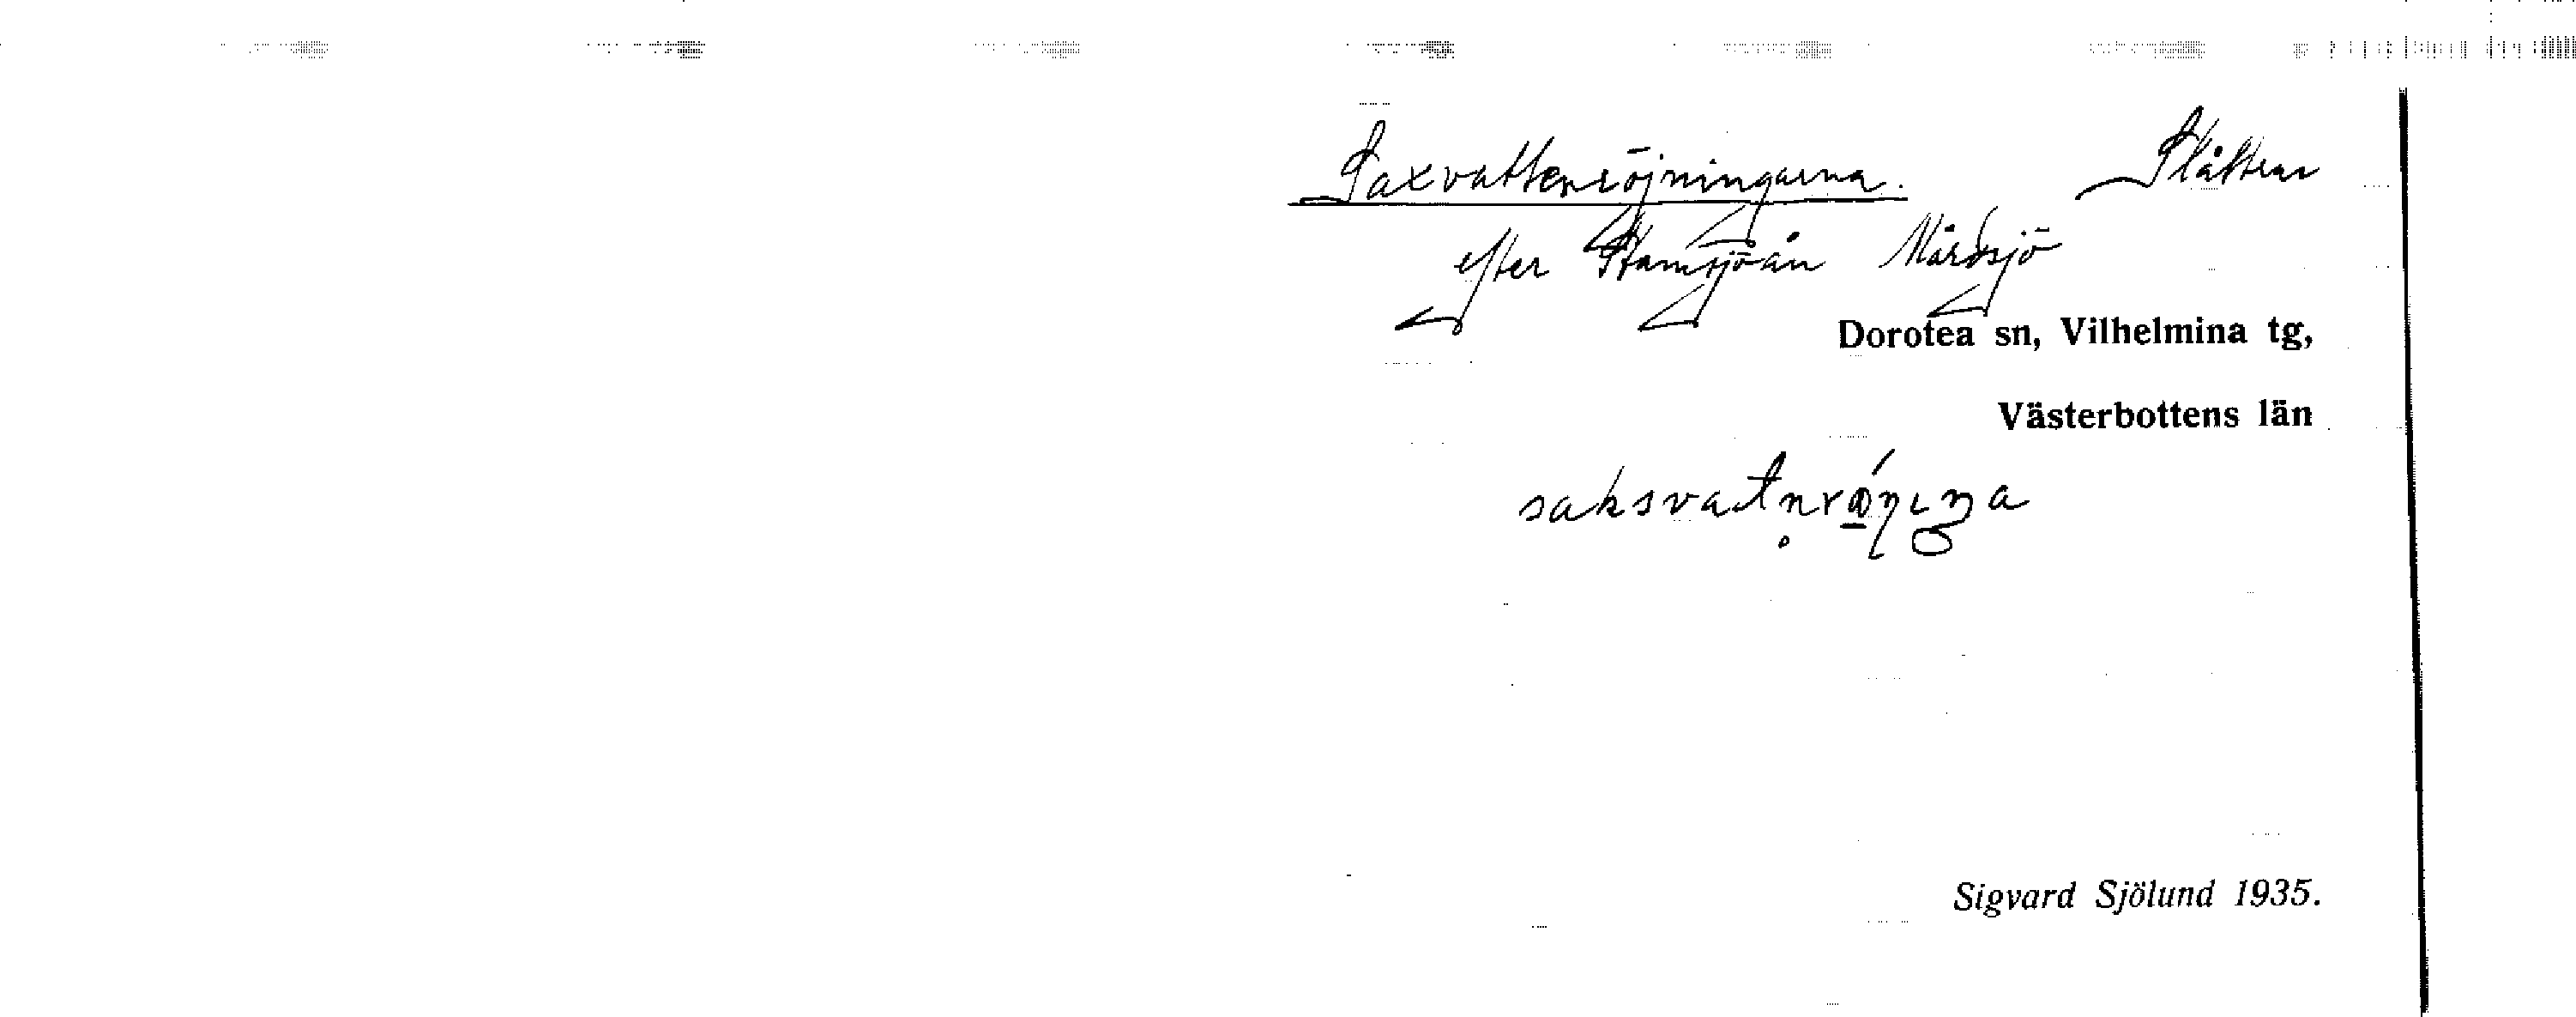 Saxvattenröjningarna. Slåtter
efter Stamsjöån Mårdsjö
Dorotea sn, Vilhelmina tg,
Västerbottens län
Sigvard Sjölund 1935.